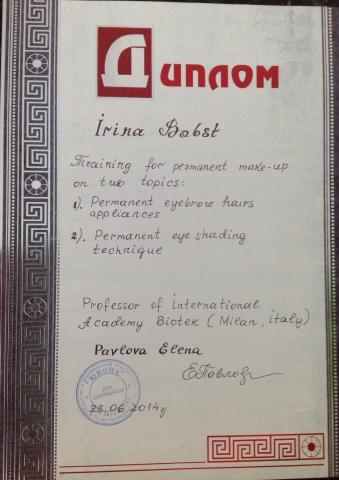 Диплом
Irina Babst
Training for permanent make-up
on two topics:
1). Permanent eyebrow hairs
appliances
2). Permanent eye shading
technique
Professor of International
Academy Biotek (Milan, italy)
Pavlova Elena
ЕПавлов
"ЮНОНА"
ДЛЯ
ДОКУМЕНТОВ
23.06.2014г